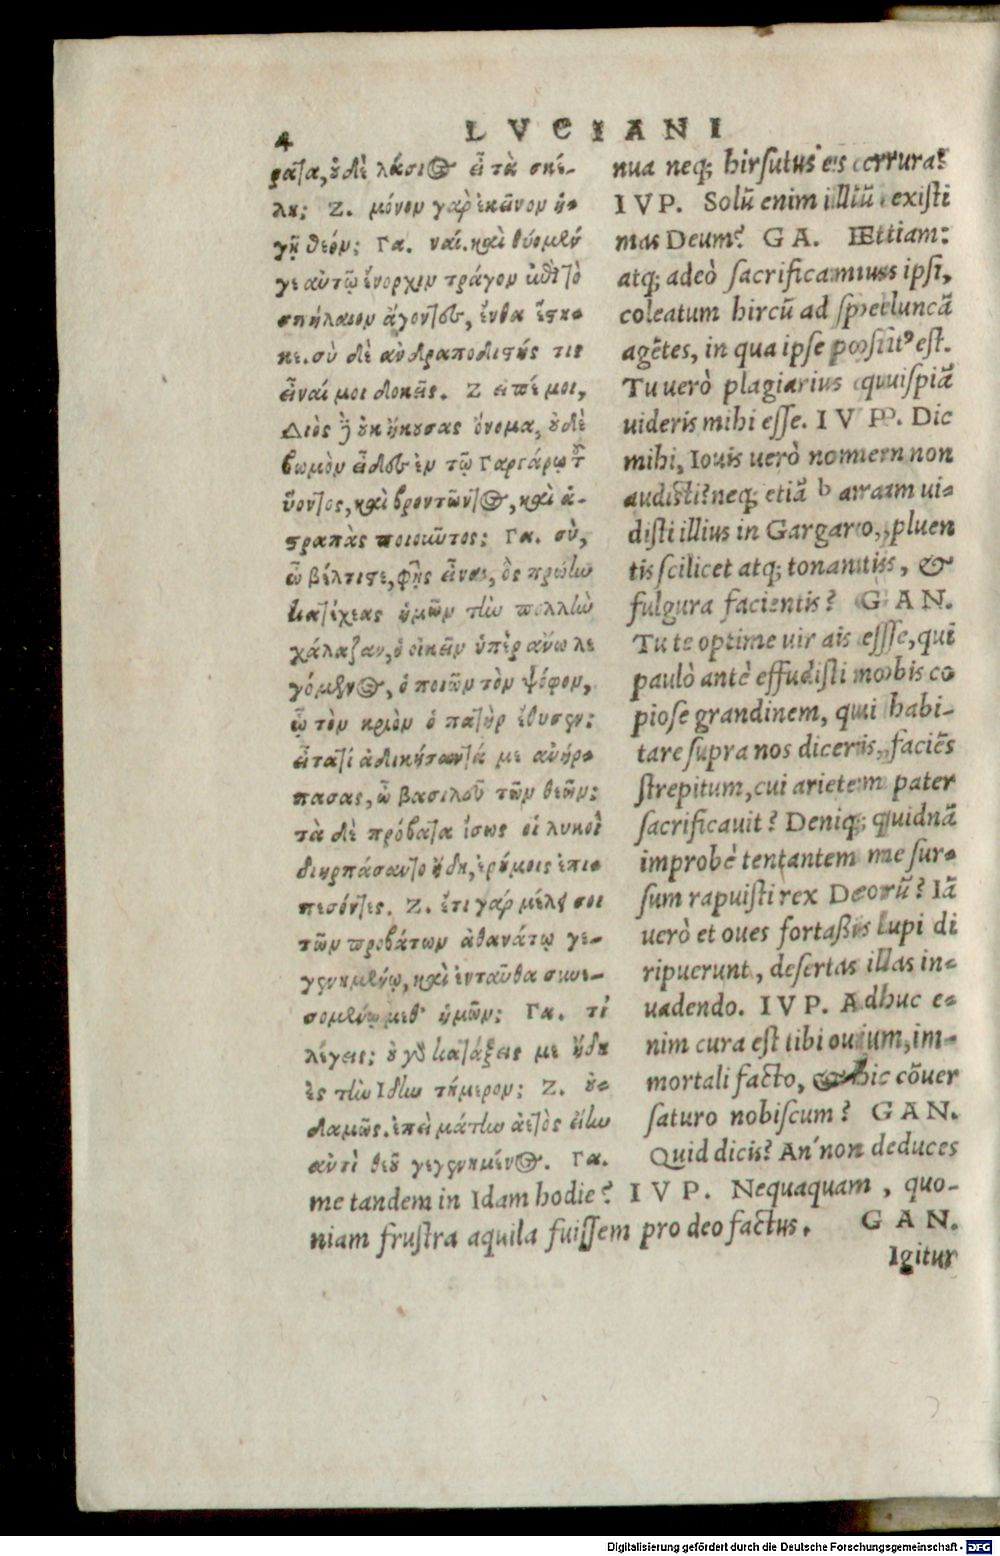 4
LVCIANI
ρατα, οὐδὲ λάσιος εἶ τὰ σκέ-
λη; Ζ. μόνον γὰρ ἐκεῖνον ἡ-
γῇ θεόν; Γα. ναί. καὶ θύομέν
γε αὐτῷ ἔνορχιν τράγον ἐπὶ τὸ
σπήλαιον ἄγοντες, ἔνθα ἕστη-
κε. σὺ δὲ ἀνδραποδιστής τις
εἶναί μοι δοκεῖς. Ζ εἰπέ μοι,
Διὸς δὲ οὐκ ἤκουσας ὄνομα, οὐδὲ
βωμὸν εἶδες ἐν τῷ Γαργάρῳ τοῦ
ὕοντος, καὶ βροντῶντος, καὶ ἀ-
στραπὰς ποιοῦντος; Γα. σὺ,
ὦ βέλτιστε, φῂς εἶναι, ὃς πρώην
κατέχεας ἡμῶν τὴν πολλὴν
χάλαζαν, ὁ οἰκεῖν ὑπὲρ ἄνω λε
γόμενος, ὁ ποιῶν τὸν ψόφον,
ᾧ τὸν κριὸν ὁ πατὴρ ἔθυσεν;
εἶτα τί ἀδικήσαντά με ἀνήρ-
πασας, ὦ βασιλεῦ τῶν θεῶν;
τὰ δὲ πρόβατα ἴσως οἱ λύκοι
διηρπάσαντο ἤδη, ἐρήμοις ἐπι-
πεσόντες. Ζ. ἔτι γὰρ μέλει σοι
τῶν προβάτων ἀθανάτῳ γε-
γενημένῳ, καὶ ἐνταῦθα συνε-
σομένῳ μεθ' ἡμῶν; Γα. τί
λέγεις; οὐ γὰρ κατάξεις με ἤδη
ἐς τὴν Ἴδην τήμερον; Ζ. οὐ-
δαμῶς. ἐπεὶ μάτην ἀετὸς εἴην
ἀντὶ θεοῦ γεγενημένος. Γα.
nua neq; hirsutus es crura?
IVP. Solũ enim illũ existi
mas Deum? GA. Etiam:
atq; adeò sacrificamus ipsi,
coleatum hircũ ad speluncã
agẽtes, in qua ipse positus est.
Tu uerò plagiarius quispiã
uideris mihi esse. IVP. Dic
mihi, Iouis uerò nomen non
audisti? neq; etiã aram ui-
disti illius in Gargaro, pluen
tis scilicet atq; tonantis, &
fulgura facientis? GAN.
Tu te optime uir ais esse, qui
paulò antè effudisti nobis co
piose grandinem, qui habi-
tare supra nos diceris, faciẽs
strepitum, cui arietem pater
sacrificauit? Deniq; quidnã
improbè tentantem me sur-
sum rapuisti rex Deorũ? Iã
uerò et oues fortaßis lupi di
ripuerunt, desertas illas in-
uadendo. IVP. Adhuc e-
nim cura est tibi ouium, im-
mortali facto, & hic cõuer
saturo nobiscum? GAN.
Quid dicis? An' non deduces
me tandem in Idam hodie? IVP. Nequaquam, quo-
niam frustra aquila fuissem pro deo factus. GAN.
Igitur
Digitalisierung gefördert durch die Deutsche Forschungsgemeinschaft - DFG